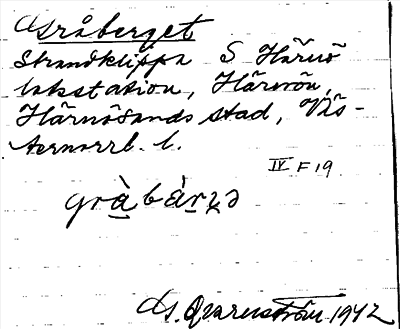 Gråberget
Strandklippa S Härnö
lotsstation, Härnön,
Härnösands stad, Väs-
ternorrl. l.
IV F 19
gràbàrʐə
G. Qvarnström 1942